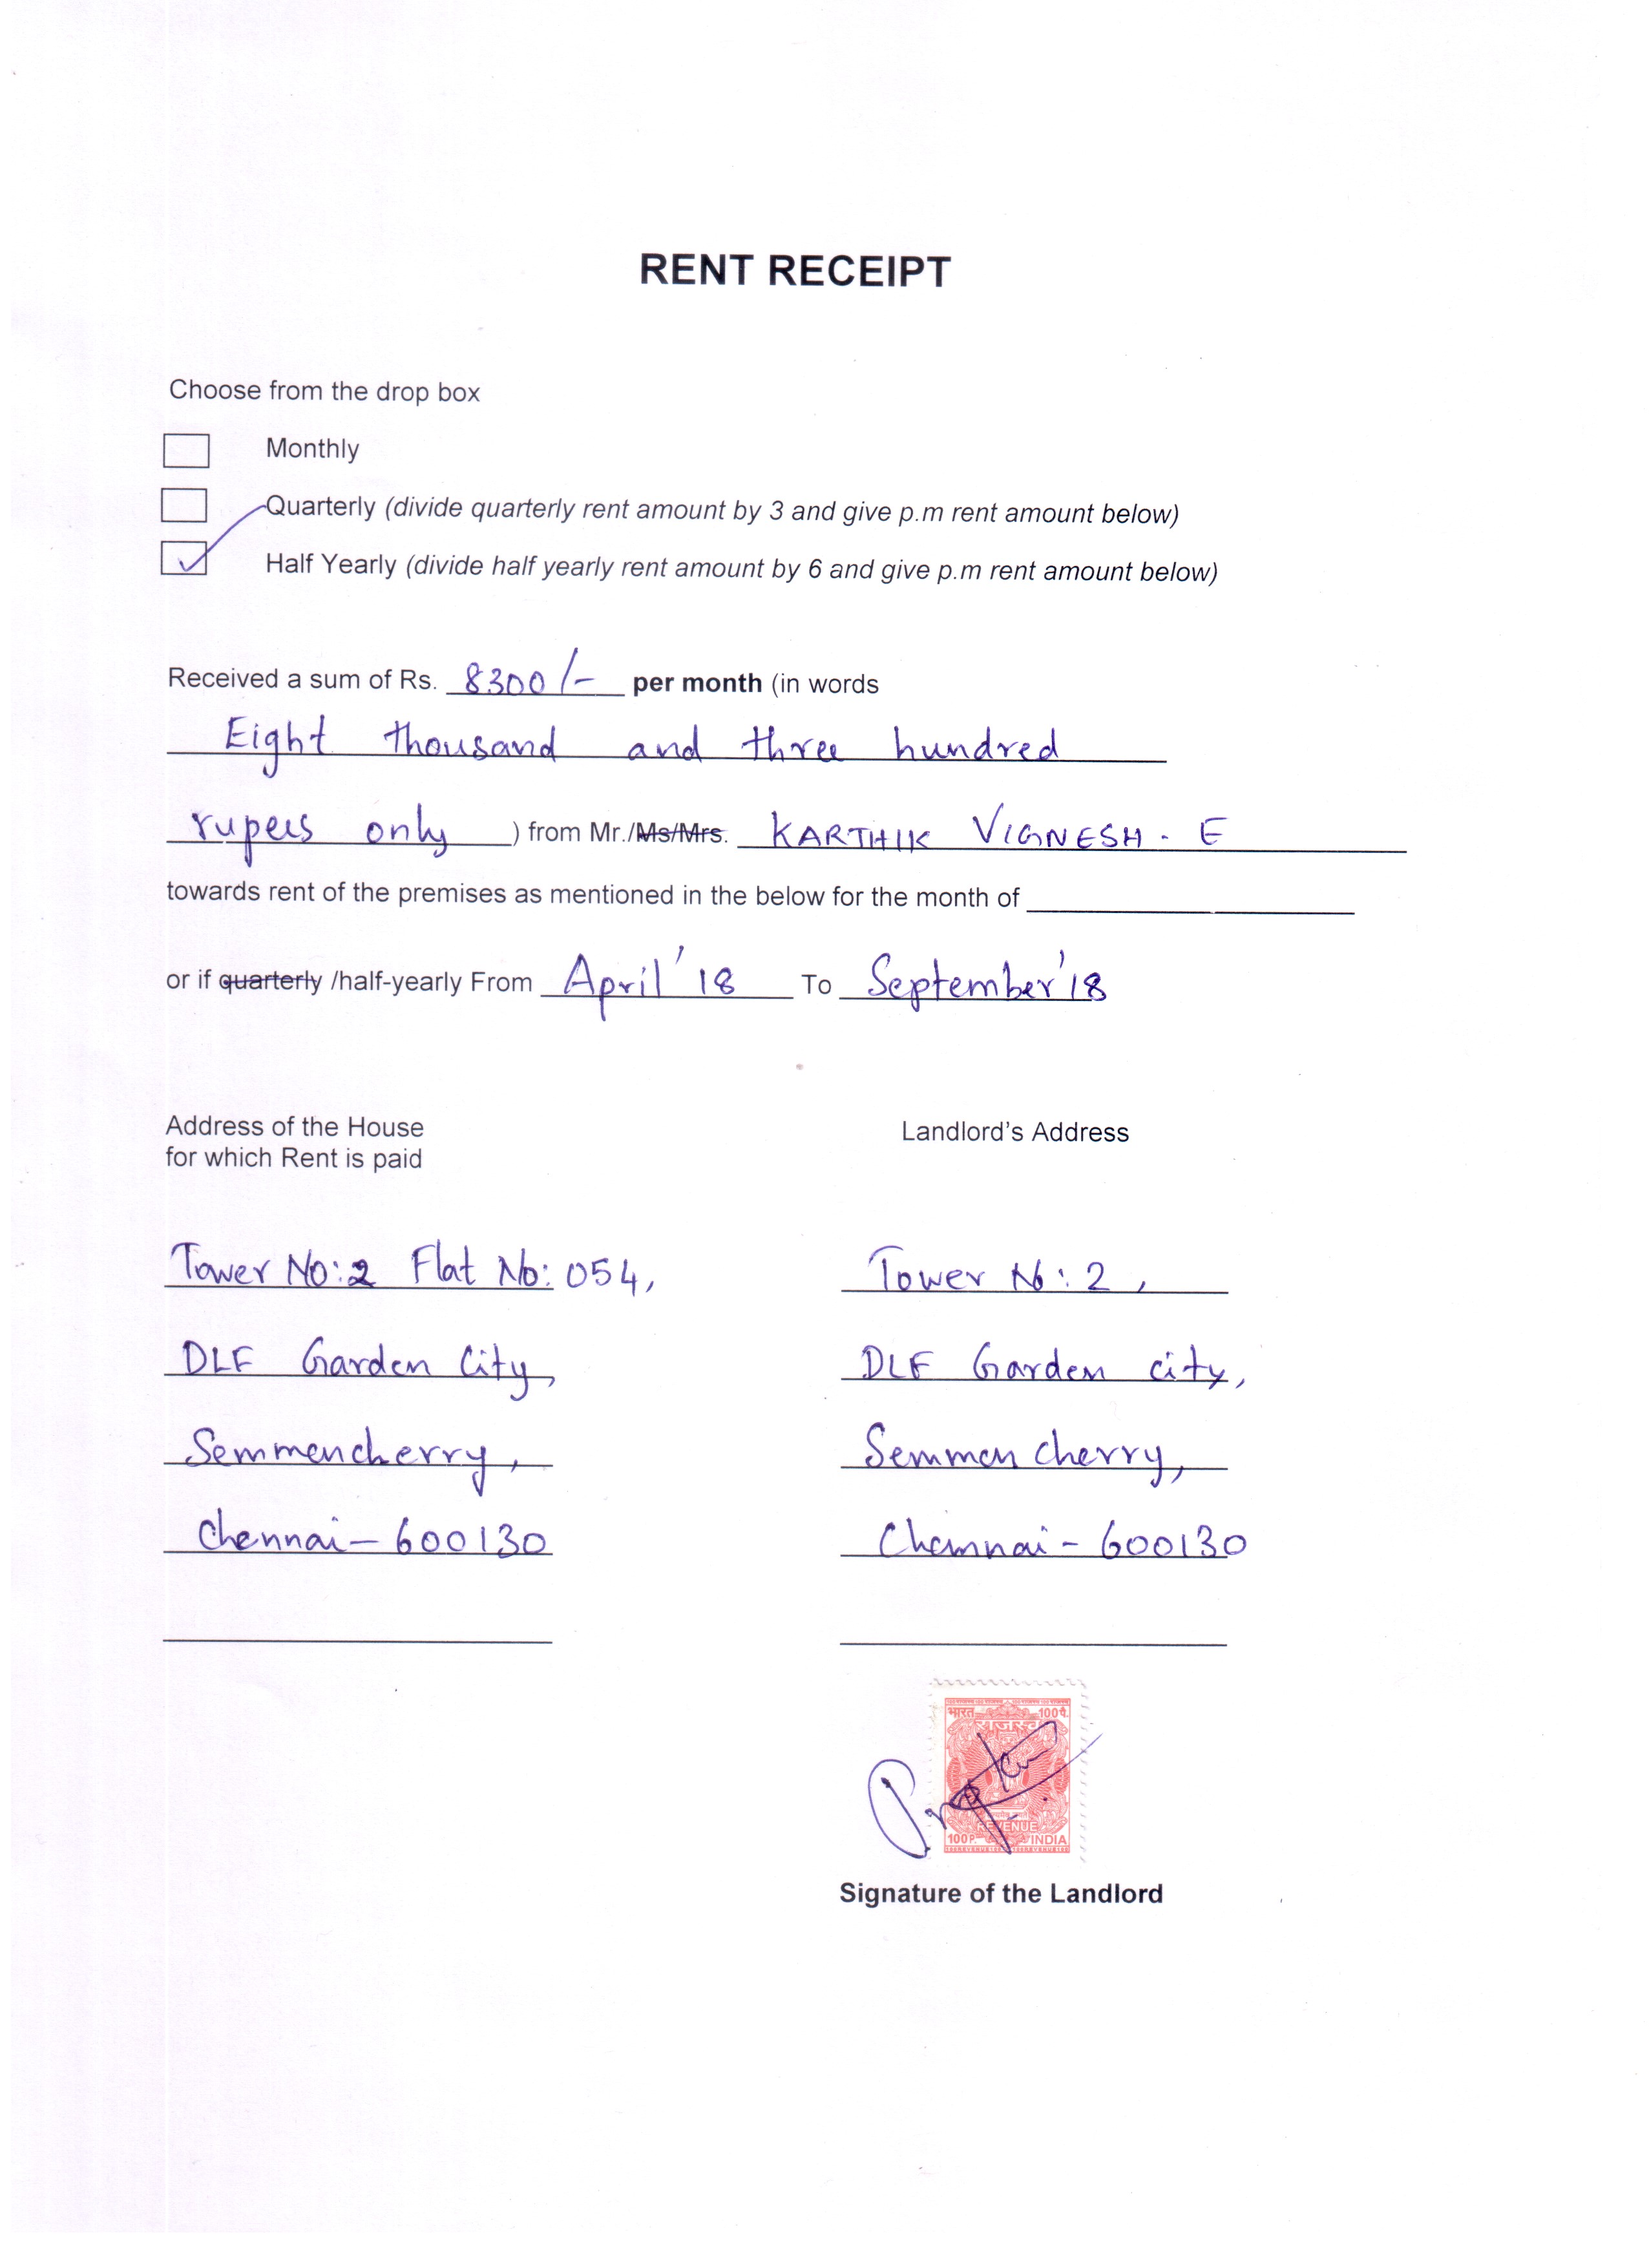 RENT RECEIPT
Choose from the drop box
Monthly
Quarterly (divide quarterly rent amount by 3 and give p.m rent amount below)
Half Yearly (divide half yearly rent amount by 6 and give p.m rent amount below)
Received a sum of Rs. 8300/- per month (in words
Eight thousand and three hundred
rupees only ) from Mr./Ms/Mrs. KARTHIK VIGNESH - E
towards rent of the premises as mentioned in the below for the month of
or if quarterly /half-yearly From April '18 To September '18
Address of the House
for which Rent is paid
Tower No:2 Flat No: 054,
DLF Garden City,
Semmencherry,
Chennai - 600130
Landlord's Address
Tower No: 2,
DLF Garden city,
Semmencherry,
Chennai - 600130
भारत 100 पै.
राजस्व
REVENUE
100 P. INDIA
Signature of the Landlord